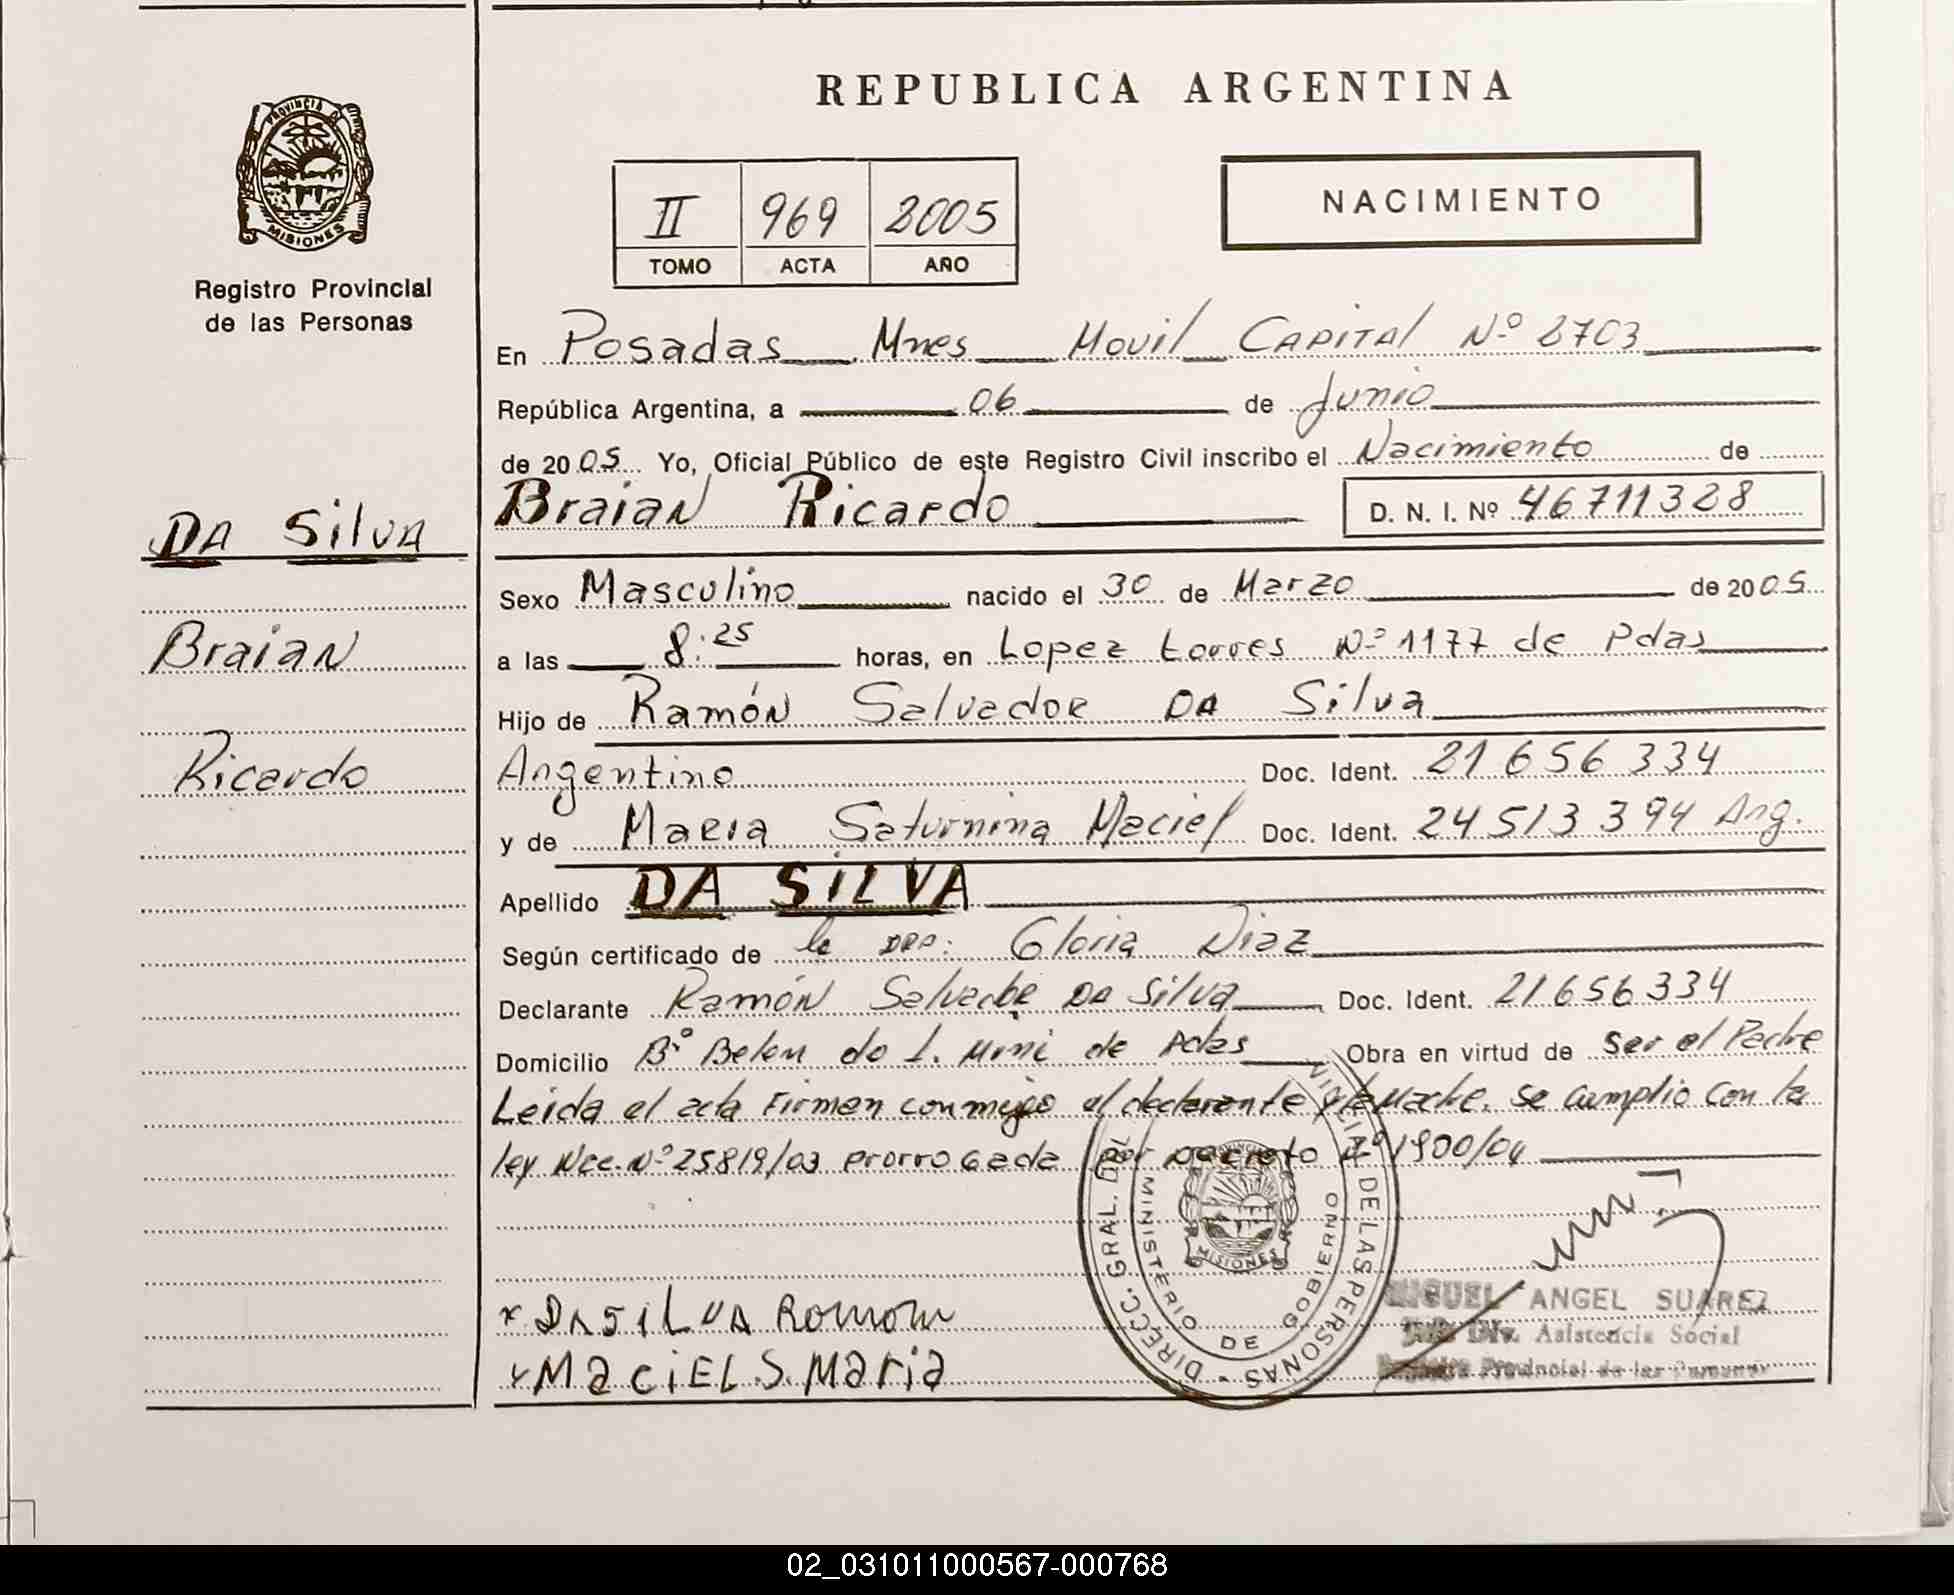 REPUBLICA ARGENTINA
PROVINCIA DE
MISIONES
Registro Provincial
de las Personas
II 969 2005
TOMO ACTA AÑO
NACIMIENTO
En Posadas Mnes Movil Capital Nº 2703
República Argentina, a 06 de Junio
de 2005 Yo, Oficial Público de este Registro Civil inscribo el Nacimiento de
Braian Ricardo D. N. I. Nº 46711328
DA Silva
Braian
Ricardo
Sexo Masculino nacido el 30 de Marzo de 2005
a las 8:25 horas, en Lopez torres Nº 1177 de Pdas
Hijo de Ramón Salvador DA Silva
Argentino Doc. Ident. 21 656 334
y de Maria Saturnina Maciel Doc. Ident. 24 513 394 Arg.
Apellido DA SILVA
Según certificado de la DRA: Gloria Diaz
Declarante Ramón Salvador DA Silva Doc. Ident. 21656334
Domicilio Bº Belen do I. Mini de Pdas Obra en virtud de Ser el Padre
Leida el acta Firman conmigo el declarante y la Madre. Se cumplio con la
ley Nac. Nº 25819/03 prorrogada por Decreto Nº 1900/04
DIRECC. GRAL. DEL DE LAS PERSONAS
MINISTERIO DE GOBIERNO
MISIONES
x DA SILVA Ramon
x MACIEL S. Maria
MIGUEL ANGEL SUAREZ
Div. Asistencia Social
Registro Provincial de las Personas
02_031011000567-000768